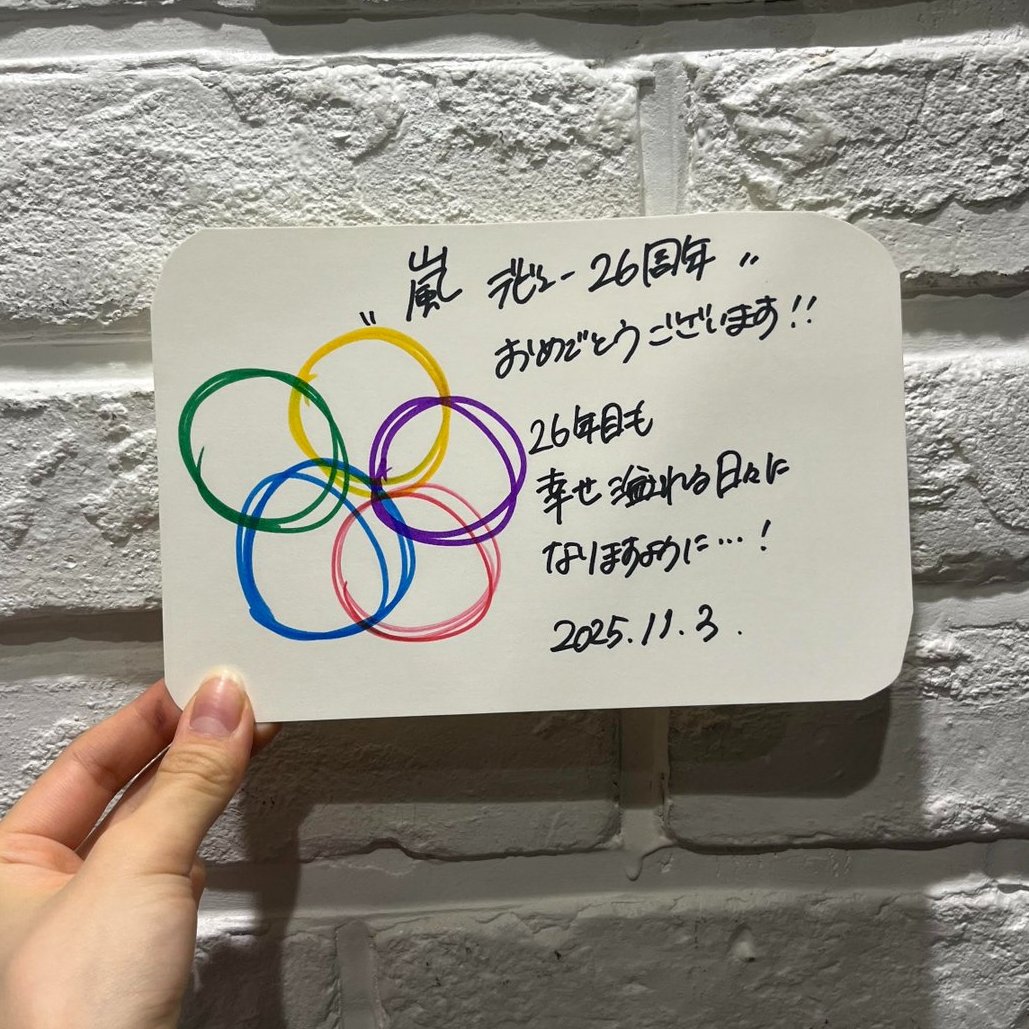 "嵐 デビュー26周年"
おめでとうございます!!
26年目も
幸せ溢れる日々に
なりますように…!
2025.11.3.